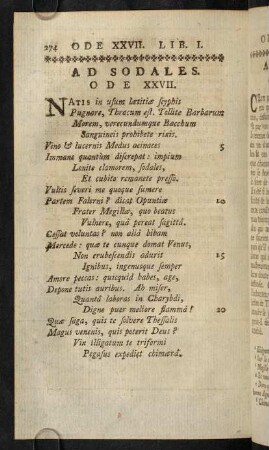 274 ODE XXVII. LIB. I.
AD SODALES.
ODE XXVII.
NATIS in usum lætitiæ scyphis
Pugnare, Thracum est. Tollite Barbarum
Morem, verecundumque Bacchum
Sanguineis prohibete rixis.
Vino & lucernis Medus acinaces 5
Immane quantum discrepat: impium
Lenite clamorem, sodales,
Et cubito remanete presso.
Vultis severi me quoque sumere
Partem Falerni? dicat Opuntiæ 10
Frater Megillæ, quo beatus
Vulnere, quâ pereat sagittâ.
Cessat voluntas? non aliâ bibam
Mercede: quæ te cunque domat Venus,
Non erubescendis adurit 15
Ignibus, ingenuoque semper
Amore peccas: quicquid habes, age,
Depone tutis auribus. Ah miser,
Quantâ laboras in Charybdi,
Digne puer meliore flammâ? 20
Quæ saga, quis te solvere Thessalis
Magus venenis, quis poterit Deus?
Vix illigatum te triformi
Pegasus expediet chimærâ.